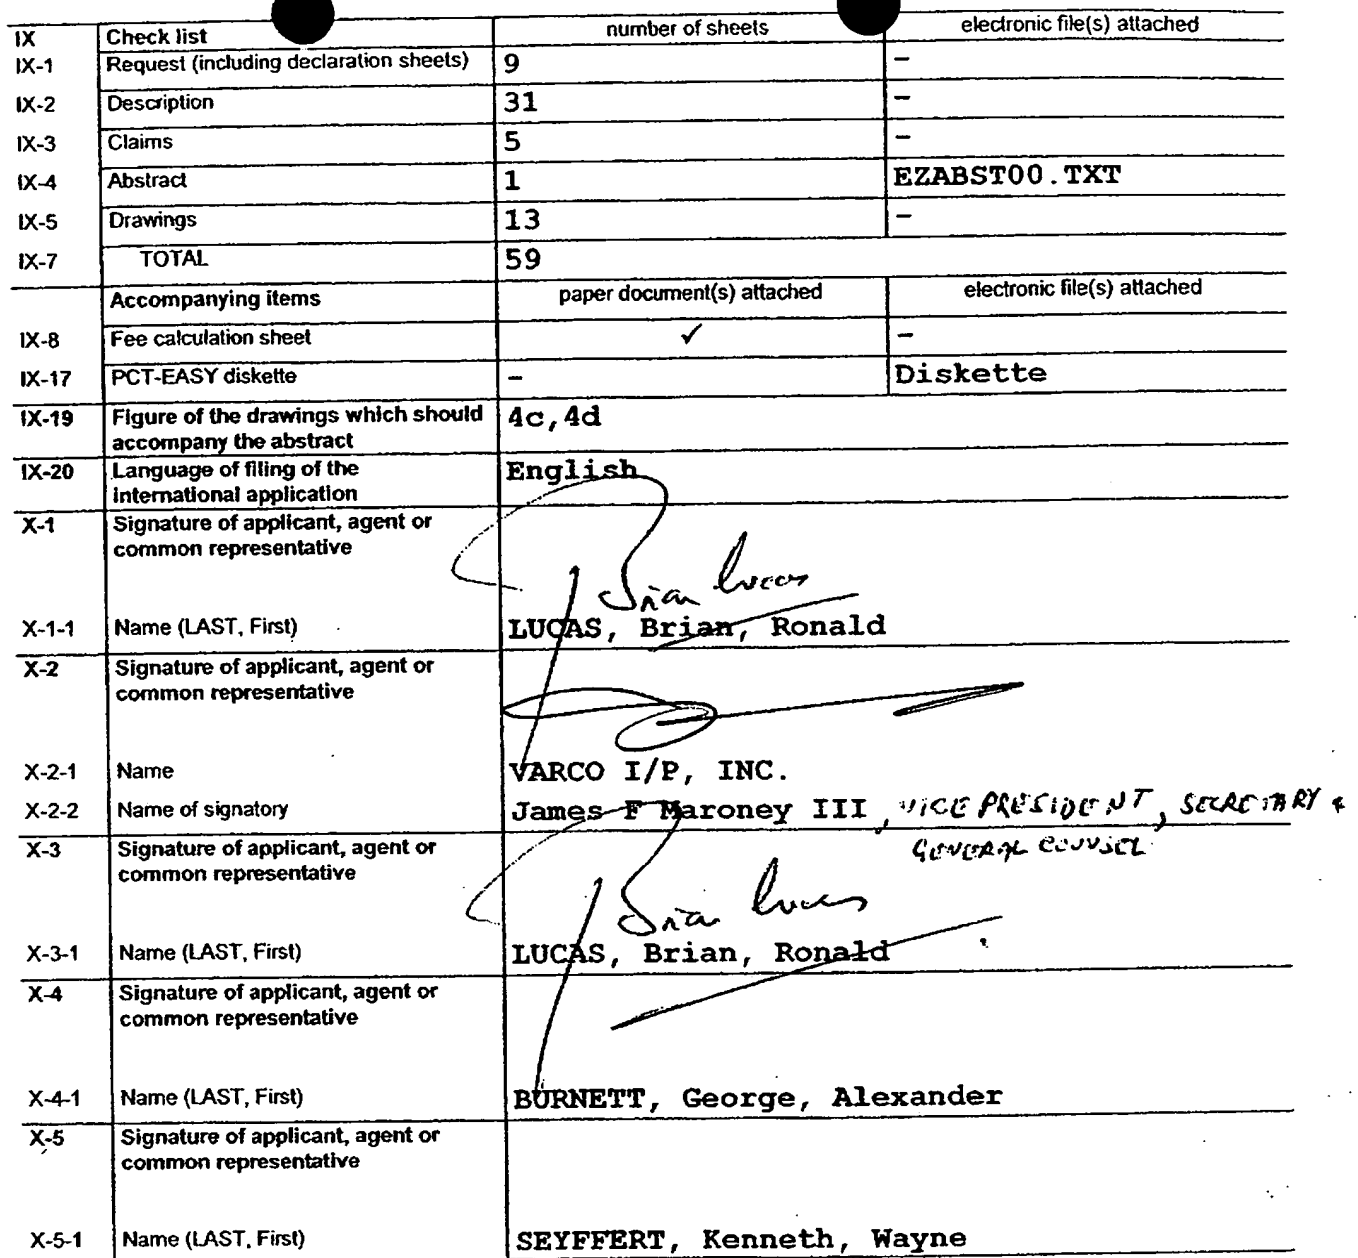 IX Check list number of sheets electronic file(s) attached
IX-1 Request (including declaration sheets) 9 –
IX-2 Description 31 –
IX-3 Claims 5 –
IX-4 Abstract 1 EZABST00.TXT
IX-5 Drawings 13 –
IX-7 TOTAL 59
Accompanying items paper document(s) attached electronic file(s) attached
IX-8 Fee calculation sheet ✓ –
IX-17 PCT-EASY diskette – Diskette
IX-19 Figure of the drawings which should 4c,4d
accompany the abstract
IX-20 Language of filing of the English
international application
X-1 Signature of applicant, agent or
common representative
Brian Lucas
X-1-1 Name (LAST, First) LUCAS, Brian, Ronald
X-2 Signature of applicant, agent or
common representative
X-2-1 Name VARCO I/P, INC.
X-2-2 Name of signatory James F Maroney III, VICE PRESIDENT, SECRETARY &
GENERAL COUNSEL
X-3 Signature of applicant, agent or
common representative
Brian Lucas
X-3-1 Name (LAST, First) LUCAS, Brian, Ronald
X-4 Signature of applicant, agent or
common representative
X-4-1 Name (LAST, First) BURNETT, George, Alexander
X-5 Signature of applicant, agent or
common representative
X-5-1 Name (LAST, First) SEYFFERT, Kenneth, Wayne